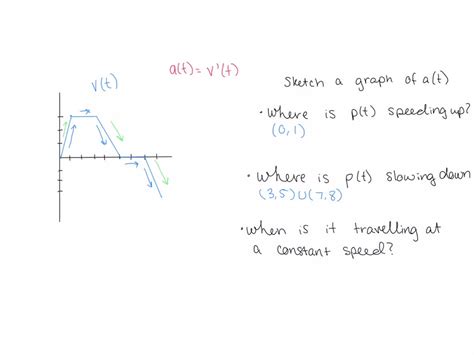 v(t)
a(t) = v'(t)
Sketch a graph of a(t)
• Where is p(t) speeding up?
(0,1)
• Where is p(t) slowing down
(3,5)∪(7,8)
• When is it travelling at
a constant speed?